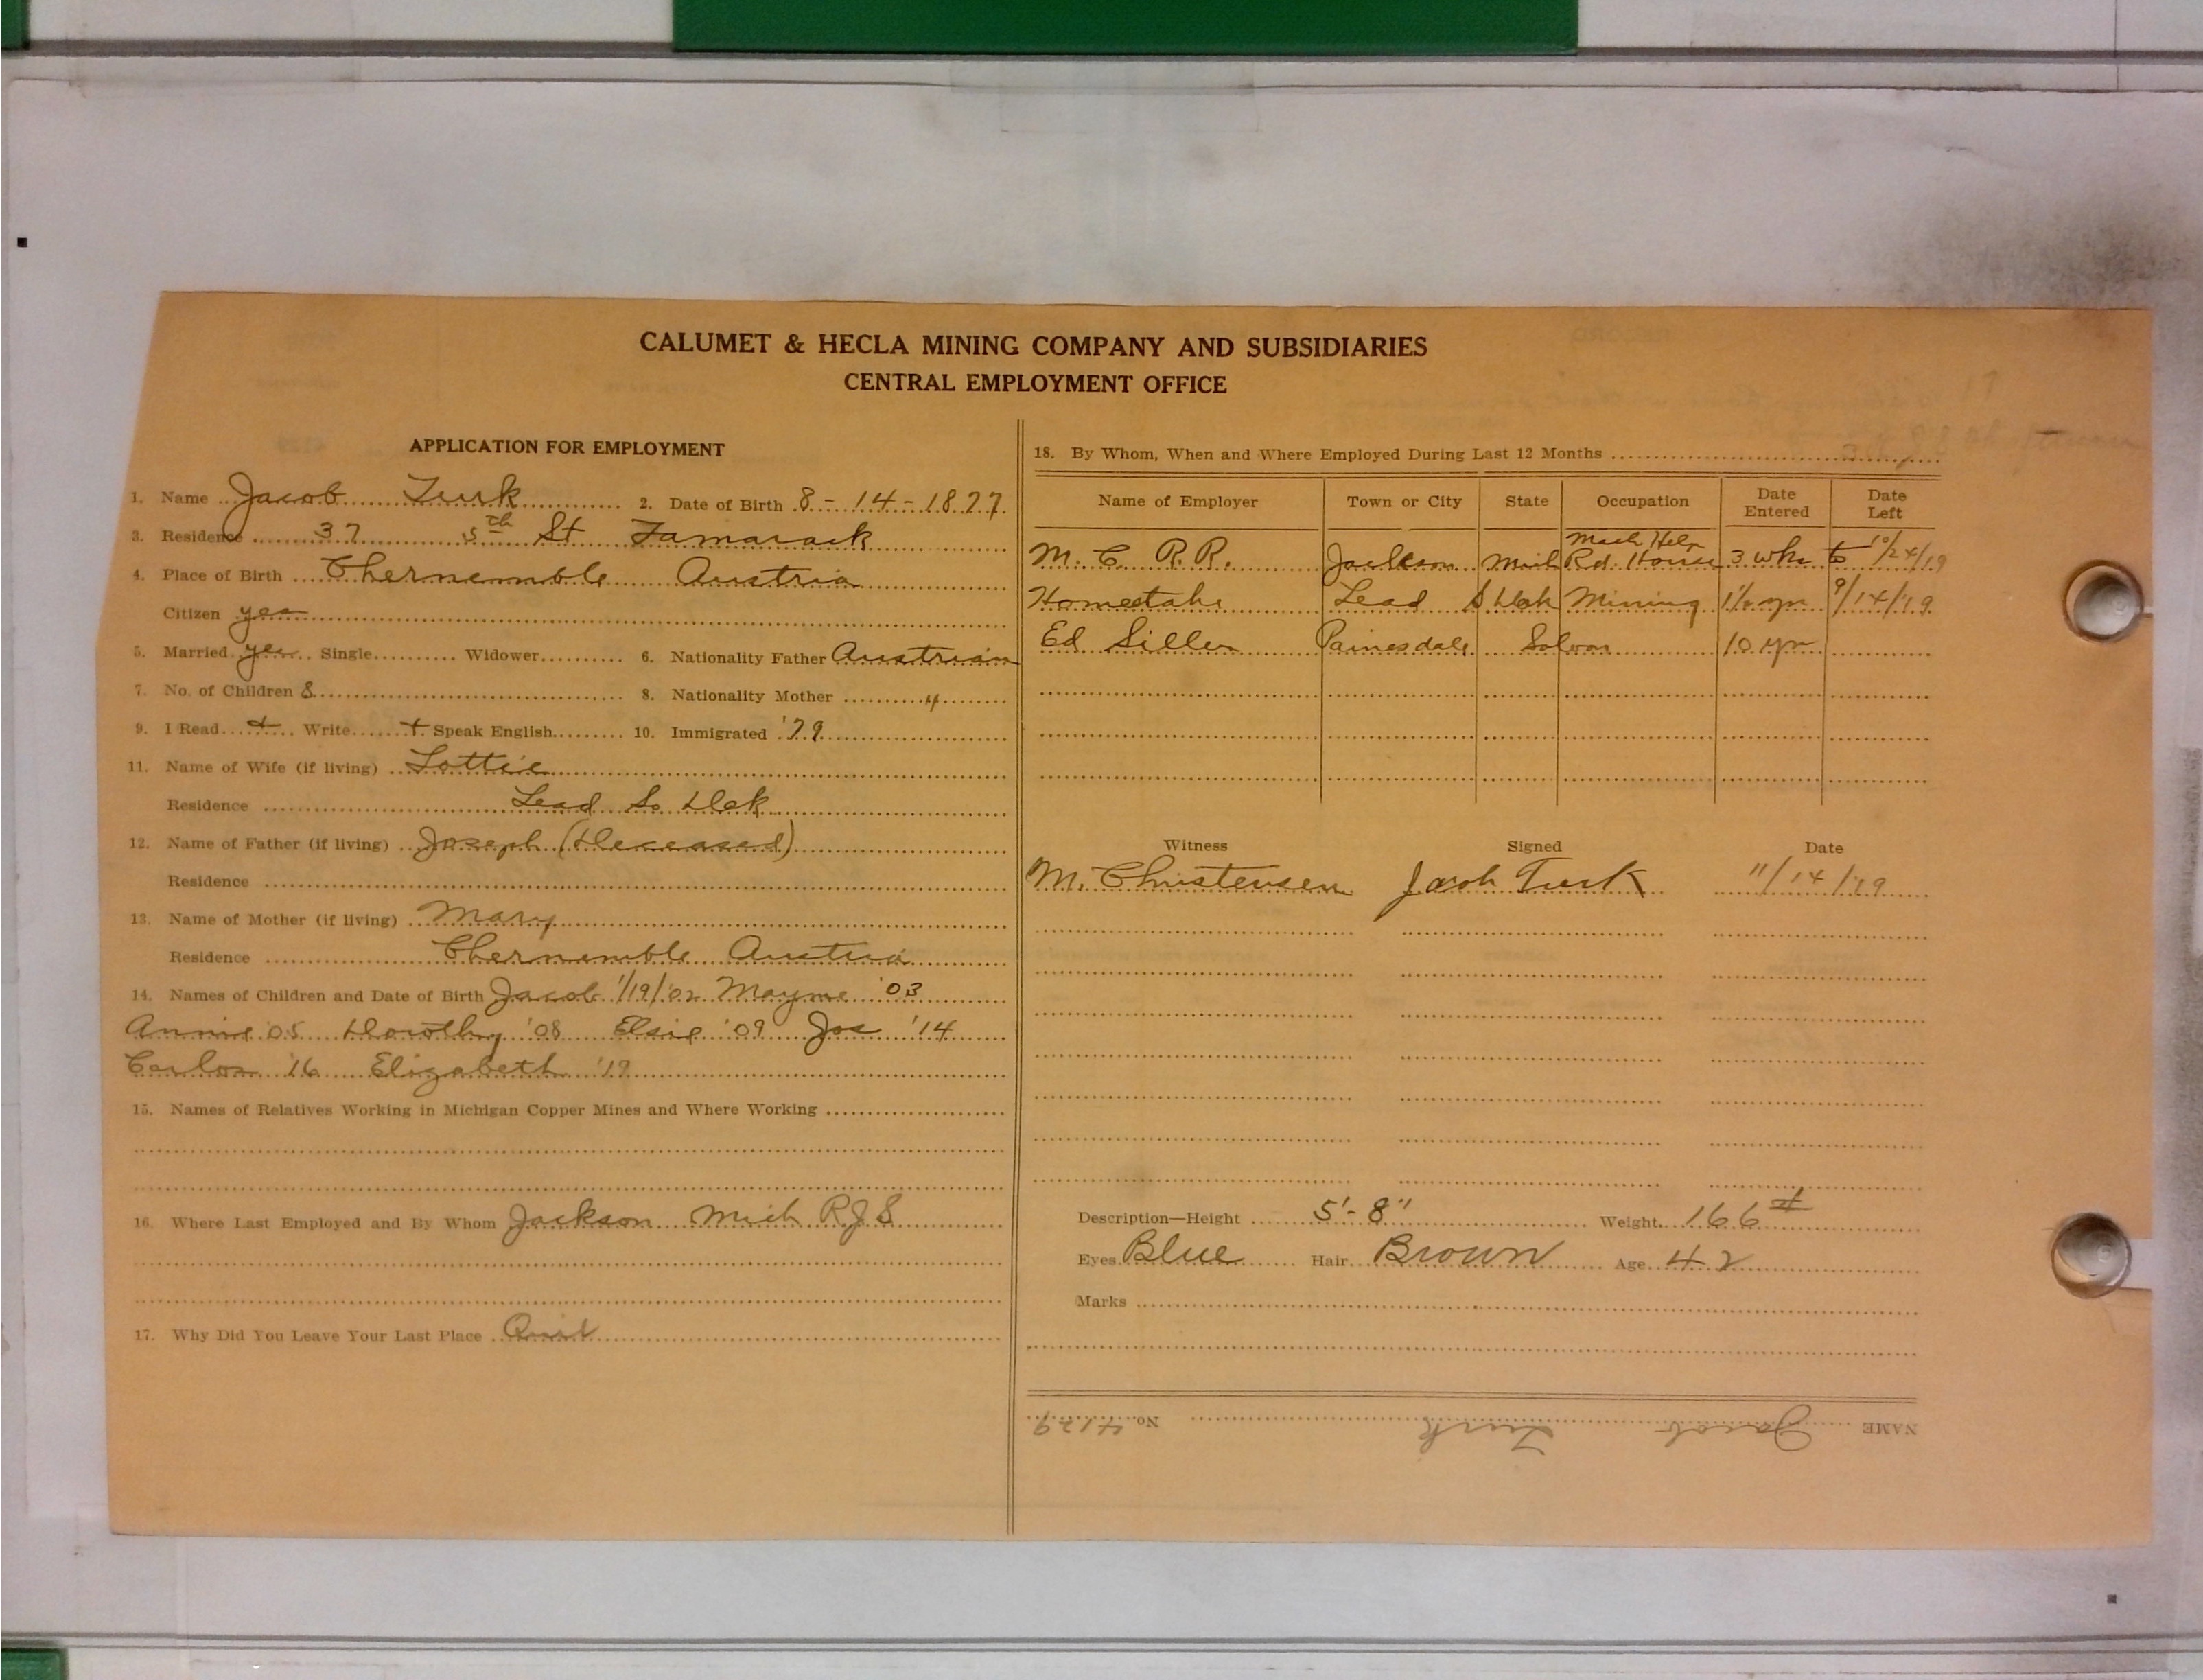 CALUMET & HECLA MINING COMPANY AND SUBSIDIARIES
CENTRAL EMPLOYMENT OFFICE
APPLICATION FOR EMPLOYMENT
1. Name Jacob Turk 2. Date of Birth 8-14-1877
3. Residence 37 5th St Tamarack
4. Place of Birth Chernemble Austria
Citizen yes
5. Married yes Single Widower 6. Nationality Father Austrian
7. No. of Children 8 8. Nationality Mother "
9. I Read + Write + Speak English 10. Immigrated '79
11. Name of Wife (if living) Lottie
Residence Lead So Dak
12. Name of Father (if living) Joseph (Deceased)
Residence
13. Name of Mother (if living) Mary
Residence Chernemble Austria
14. Names of Children and Date of Birth Jacob 1/19/'02 Mayme '03
Annie '05 Dorothy '08 Elsie '09 Jos '14
Carlos '16 Elizabeth '19
15. Names of Relatives Working in Michigan Copper Mines and Where Working
16. Where Last Employed and By Whom Jackson Mich R.J.S
17. Why Did You Leave Your Last Place Quit
18. By Whom, When and Where Employed During Last 12 Months
Name of Employer Town or City State Occupation Date Entered Date Left
Mach Help
M. C. R.R. Jackson Mich Rd. House 3 wks to 10/24/19
Homestake Lead S Dak Mining 1½ yr 9/14/19
Ed Siller Painesdale Saloon 10 yr
Witness Signed Date
M. Christensen Jacob Turk 11/14/19
Description—Height 5'-8" Weight 166#
Eyes Blue Hair Brown Age 42
Marks
NAME Jacob Turk No. 4129